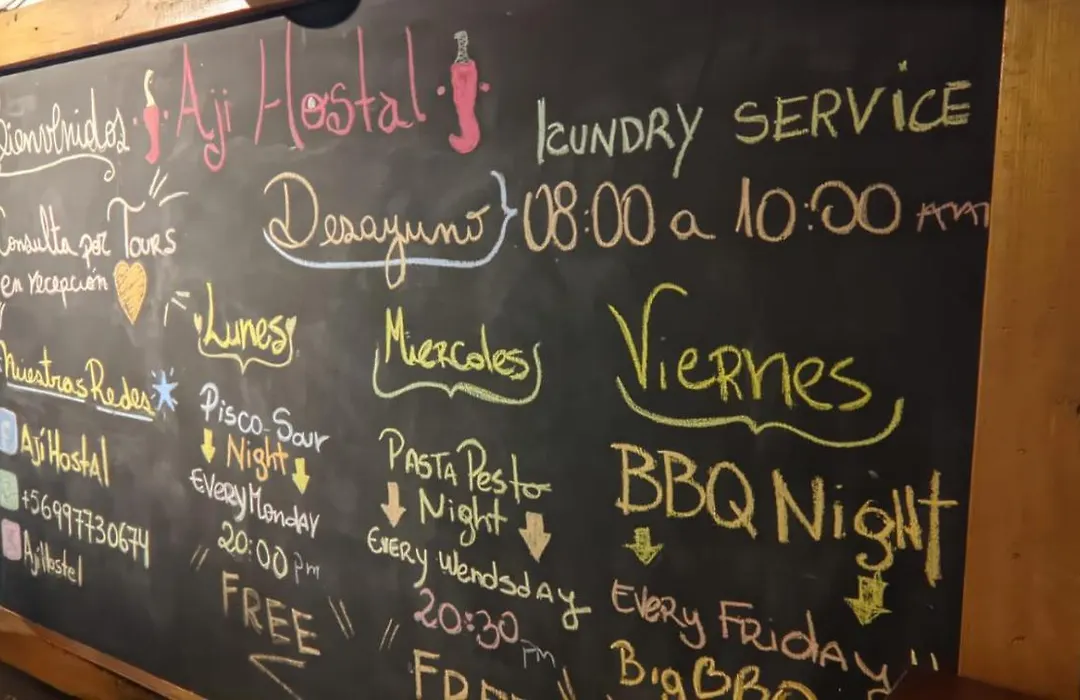 Bienvenidos Aji Hostal
LUNDRY SERVICE
Desayuno 08:00 a 10:00 AM
Consulta por Tours
en recepción
Nuestras Redes
Ají Hostal
+56997730674
AjiHostel
Lunes
Pisco-Sour
Night
Every Monday
20:00 pm
FREE
Miercoles
Pasta Pesto
Night
Every Wendsday
20:30 pm
FREE
Viernes
BBQ Night
Every Friday
Big BBQ